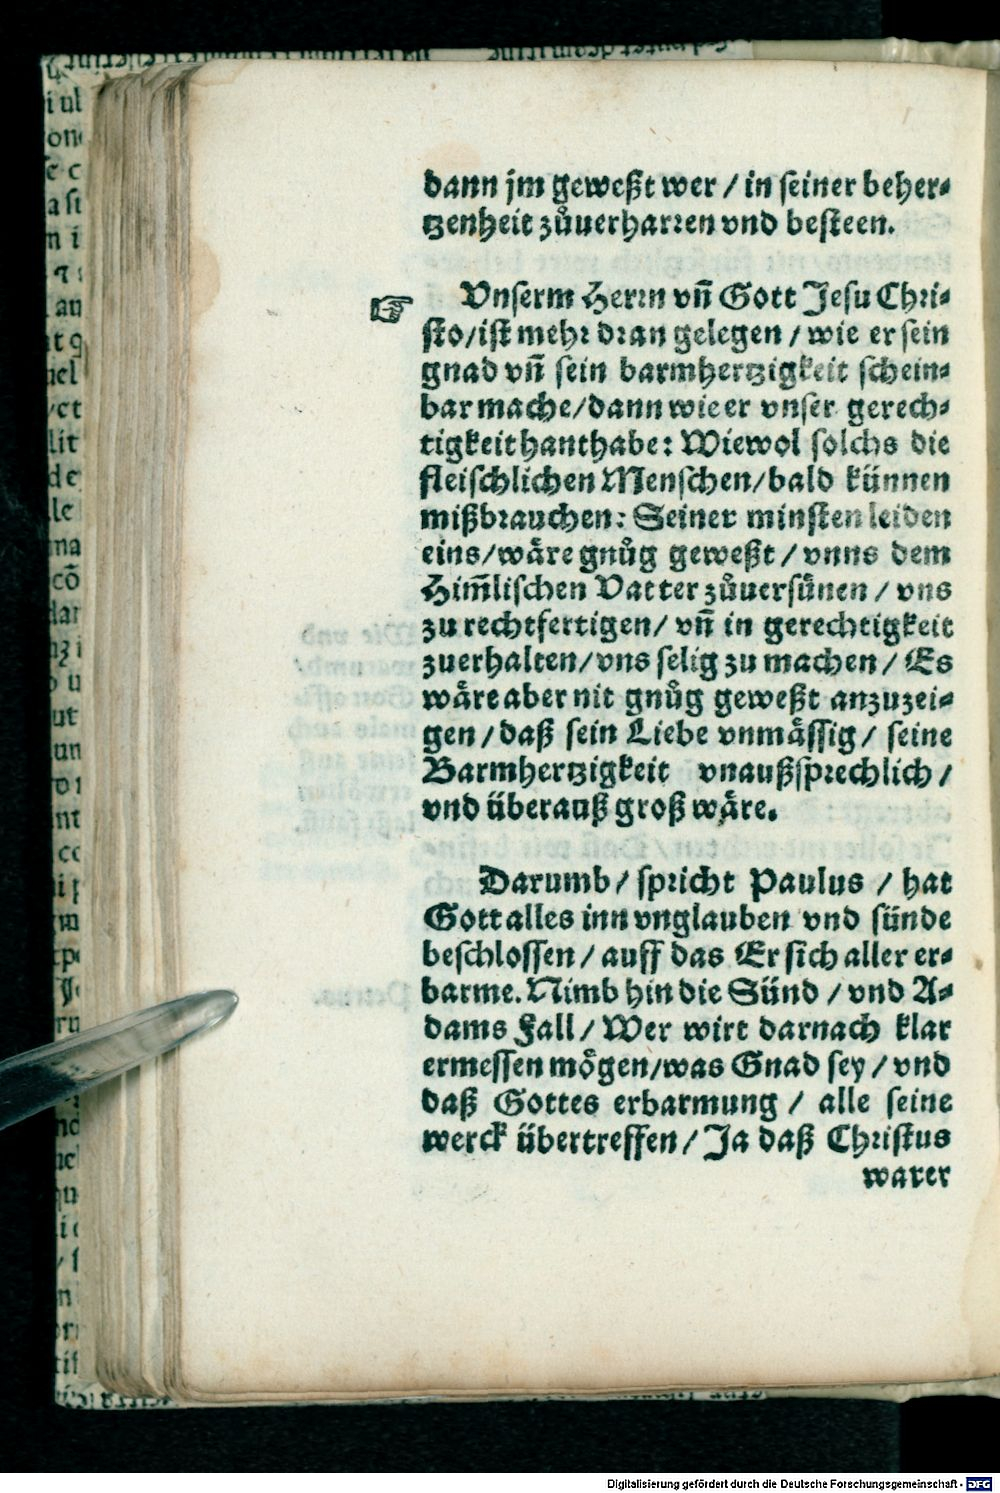 dann jm geweßt wer / in seiner beher⸗
tzenheit zůuerharren vnd besteen.
☞ Vnserm Herrn vñ Gott Jesu Chri⸗
sto/ist mehr dran gelegen / wie er sein
gnad vñ sein barmhertzigkeit schein⸗
bar mache/dann wie er vnser gerech⸗
tigkeit hanthabe: Wiewol solchs die
fleischlichen Menschen/bald künnen
mißbrauchen: Seiner minsten leiden
eins/wåre gnůg geweßt / vnns dem
Him̃lischen Vatter zůuersůnen / vns
zu rechtfertigen/ vñ in gerechtigkeit
zuerhalten/vns selig zu machen / Es
wåre aber nit gnůg geweßt anzuzei⸗
gen / daß sein Liebe vnmåssig / seine
Barmhertzigkeit vnaußsprechlich /
vnd überauß groß wåre.
Darumb / spricht Paulus / hat
Gott alles inn vnglauben vnd sünde
beschlossen / auff das Er sich aller er⸗
barme. Nimb hin die Sünd / vnd A⸗
dams Fall / Wer wirt darnach klar
ermessen mőgen/was Gnad sey / vnd
daß Gottes erbarmung / alle seine
werck übertreffen / Ja daß Christus
warer
Digitalisierung gefördert durch die Deutsche Forschungsgemeinschaft - DFG